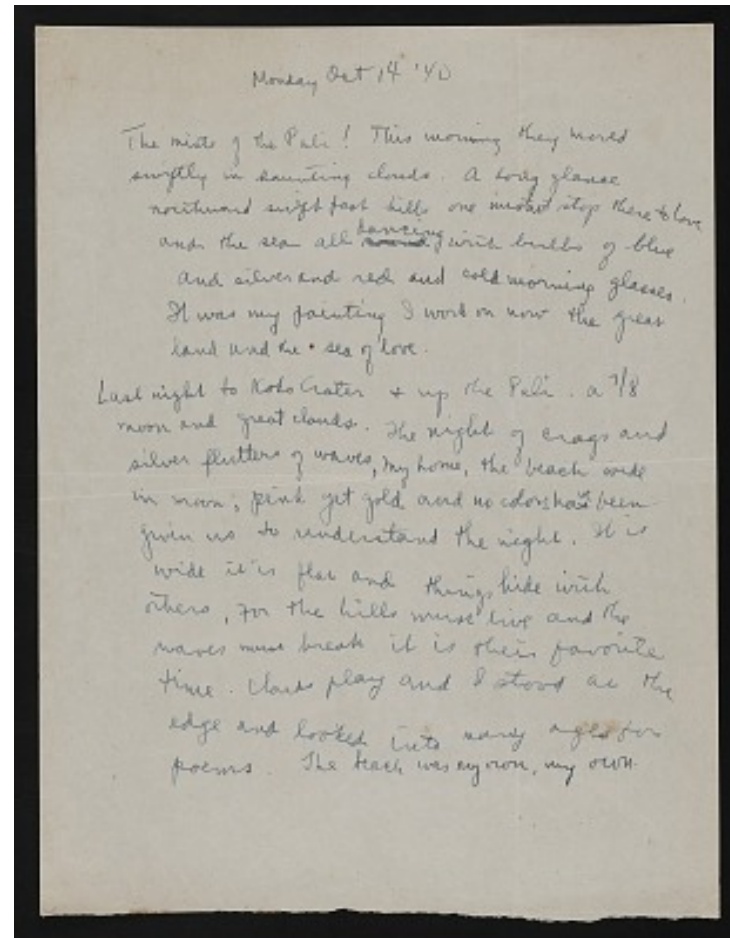 Monday Oct 14 '40
The mists of the Pali! This morning they moved
swiftly in haunting clouds. A long glance
northward swift past hills one must stop there to love
and the sea all dancing with bulbs of blue
and silver and red and cold morning glasses.
It was my painting I work on now the great
land and the sea of love.
Last night to Koko Crater + up the Pali. a 7/8
moon and great clouds. The night of crags and
silver flutters of waves, my home, the beach wide
in moon, pink yet gold and no colors have been
given us to understand the night. It is
wide it is flat and things hide with
others, For the hills must live and the
waves must break it is their favorite
time. Clouds play and I stood at the
edge and looked into many ages for
poems. The beach was my own, my own